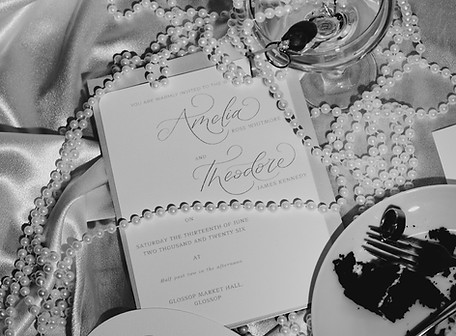 YOU ARE WARMLY INVITED TO
Amelia
ROSE
AND
Theodore
JAMES KENNEDY
ON
SATURDAY THE THIRTEENTH OF JUNE
TWO THOUSAND AND TWENTY SIX
AT
Half past two in the afternoon
GLOSSOP MARKET HALL,
GLOSSOP